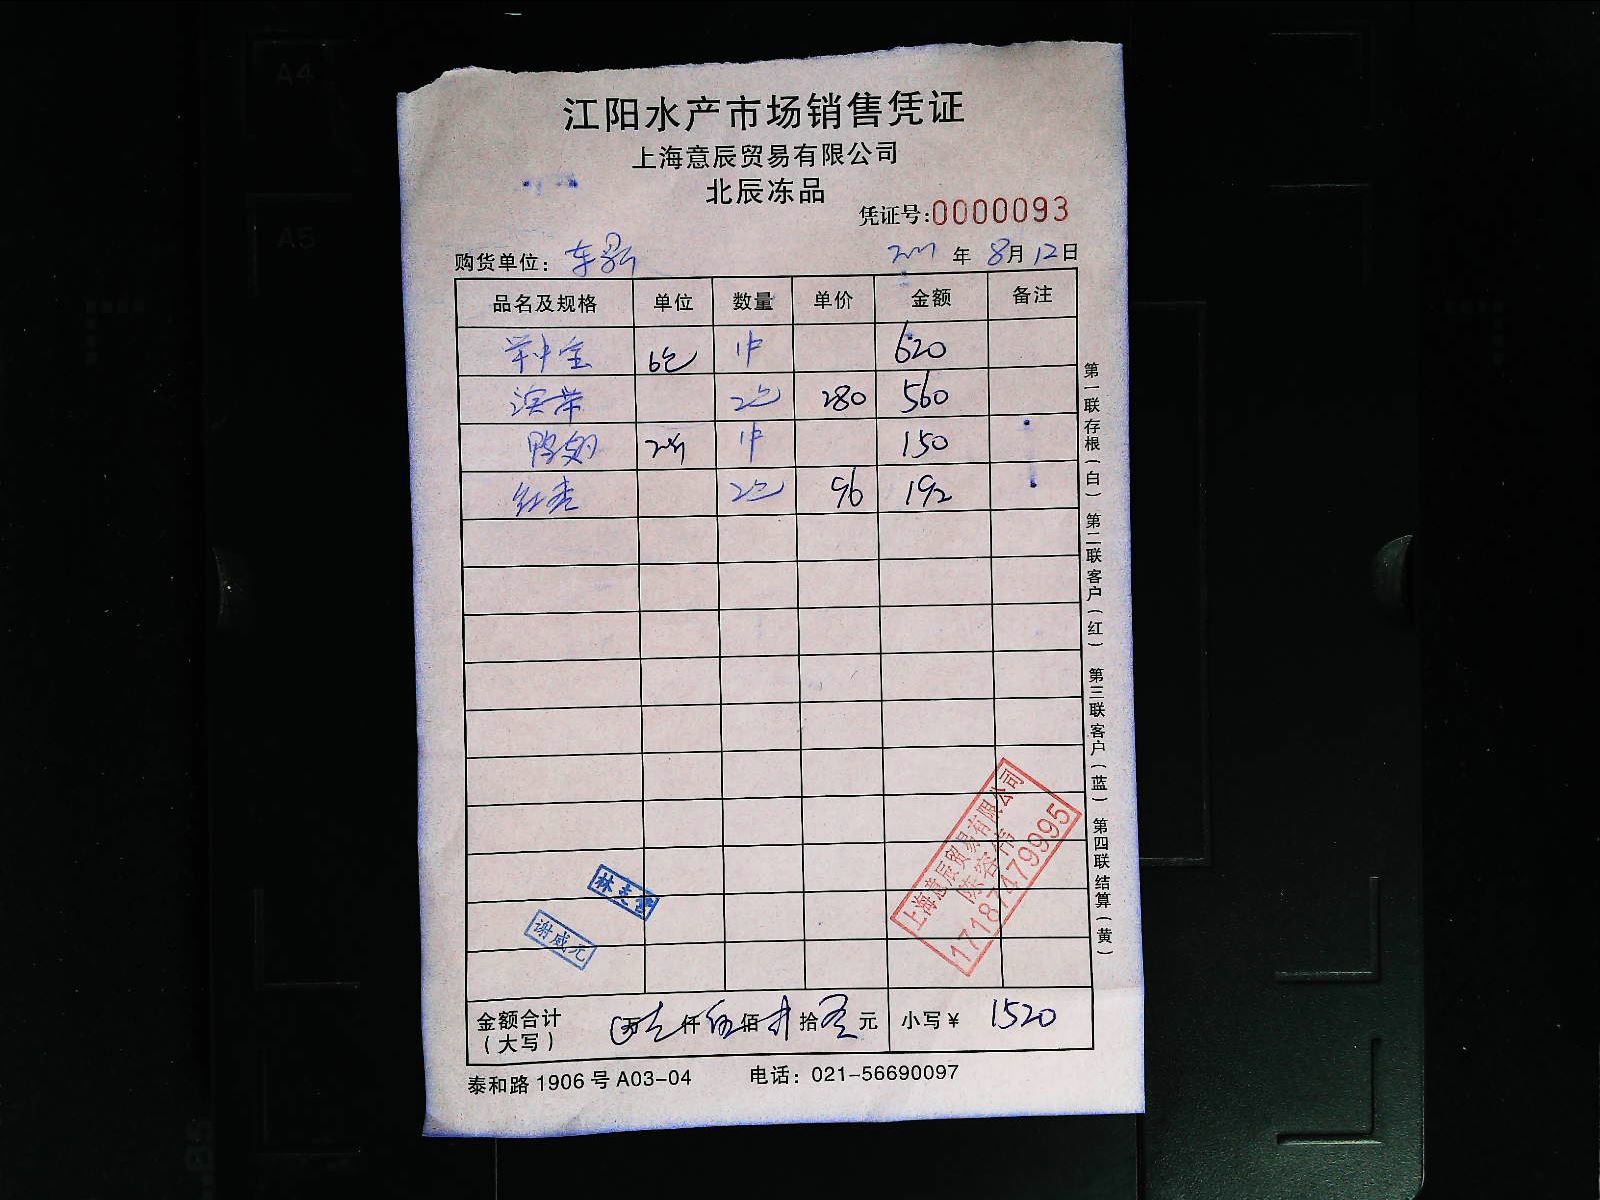 A4
A5
江阳水产市场销售凭证
上海意辰贸易有限公司
北辰冻品
凭证号:0000093
购货单位: 年 8月 12日
品名及规格 单位 数量 单价 金额 备注
6包 1件 620
2包 280 560
鸭翅 1件 150
2包 96 192
第一联存根(白) 第二联客户(红) 第三联客户(蓝) 第四联结算(黄)
上海意辰贸易有限公司
陈容伟
17187479995
谢威元
金额合计(大写) 万 仟 伍 佰 拾 元 小写¥ 1520
泰和路1906号A03-04 电话: 021-56690097